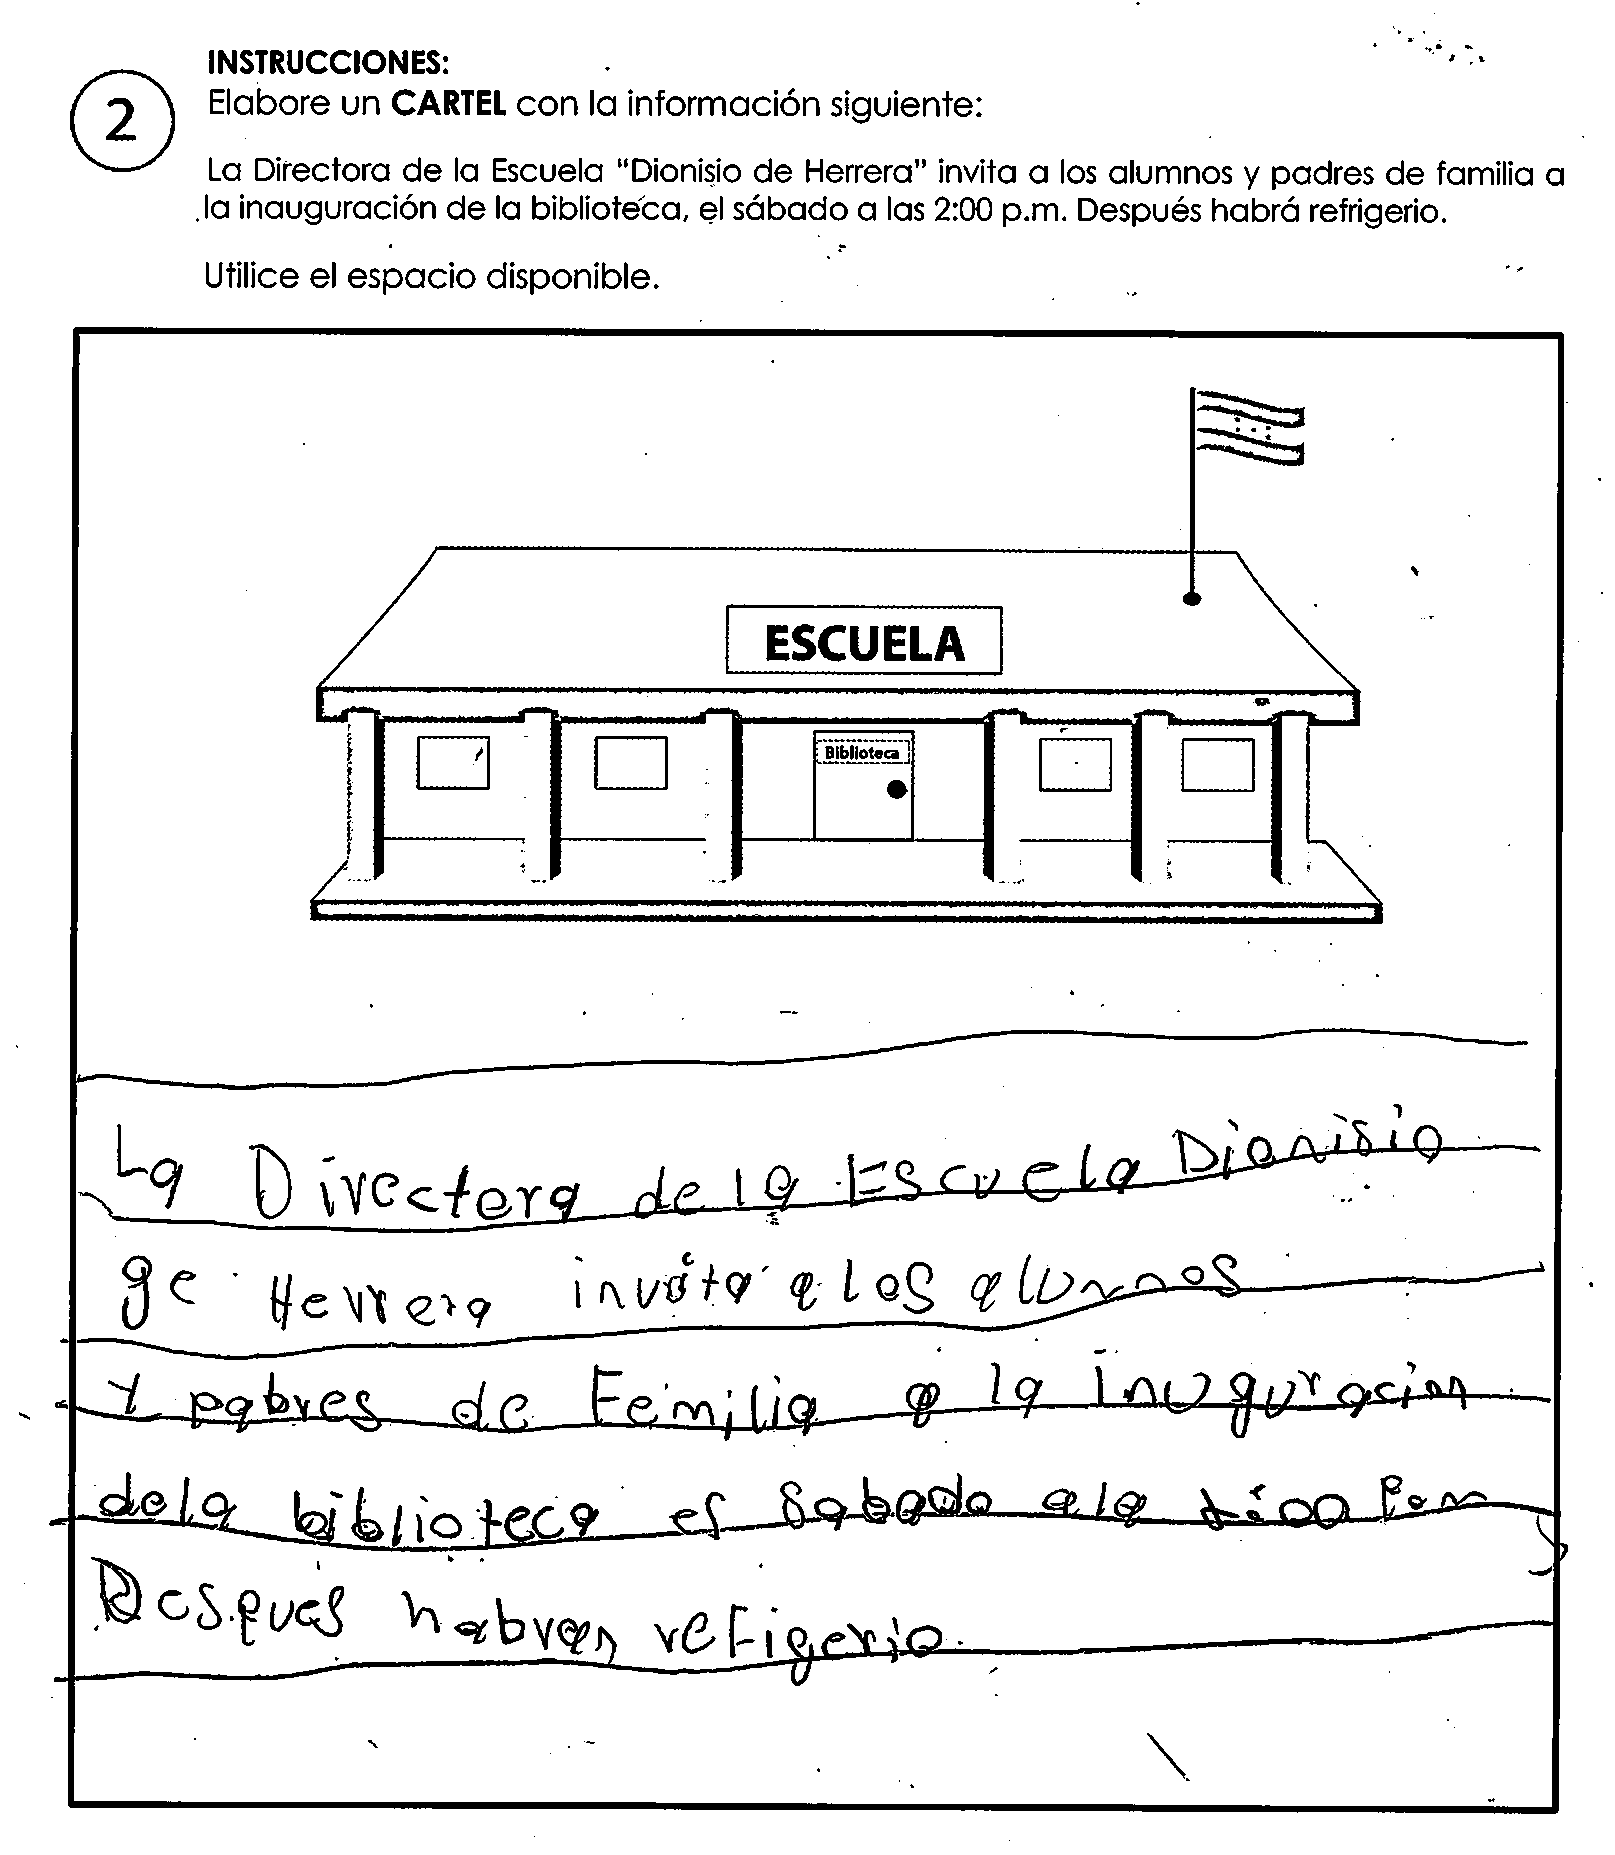 INSTRUCCIONES:
2
Elabore un CARTEL con la información siguiente:
La Directora de la Escuela "Dionisio de Herrera" invita a los alumnos y padres de familia a
la inauguración de la biblioteca, el sábado a las 2:00 p.m. Después habrá refrigerio.
Utilice el espacio disponible.
ESCUELA
Biblioteca
La Directora de la Escuela Dionisio
ge Herrera invita a los alunnos
y pabres de Femilia a la inuguracion
dela biblioteca es Sabado ala :00 P.m
Despues habran refigerio.